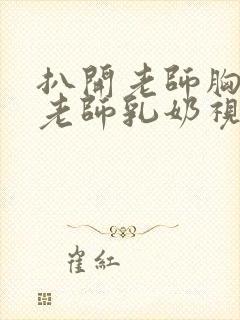 扒開老師胸
老師乳奶視
崔紅